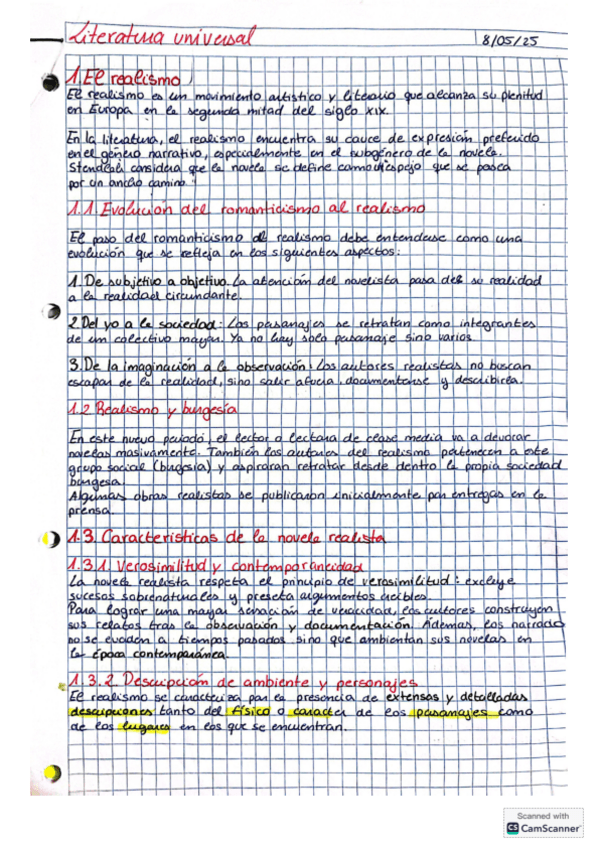 Literatura universal 8/05/25
1. El realismo
El realismo es un movimiento artistico y literario que alcanza su plenitud
en Europa en la segunda mitad del siglo XIX.
En la literatura, el realismo encuentra su cauce de expresión preferido
en el género narrativo, especialmente en el subgénero de la novela.
Stendhal considera que la novela se define como un "espejo que se pasea
por un ancho camino."
1.1. Evolución del romanticismo al realismo
El paso del romanticismo al realismo debe entenderse como una
evolución que se refleja en los siguientes aspectos:
1. De subjetivo a objetivo. La atención del novelista pasa de su realidad
a la realidad circundante.
2. Del yo a la sociedad: Los personajes se retratan como integrantes
de un colectivo mayor. Ya no hay solo personaje sino varios.
3. De la imaginación a la observación: Los autores realistas no buscan
escapar de la realidad, sino salir afuera, documentarse y describirla.
1.2 Realismo y burgesía
En este nuevo periodo, el lector o lectora de clase media va a devorar
novelas masivamente. También los autores del realismo pertenecen a este
grupo social (bugesia) y aspiraran retratar desde dentro la propia sociedad
burgesa.
Algunas obras realistas se publicaron inicialmente por entregas en la
prensa.
1.3. Caracteristicas de la novela realista
1.3.1. Verosimilitud y contemporaneidad
La novela realista respeta el principio de verosimilitud: excluye
sucesos sobrenaturales y preseta argumentos creibles.
Para lograr una mayor sensación de veracidad, los autores construyen
sus relatos tras la observación y documentación. Además, los narrado
no se evaden a tiempos pasados sino que ambientan sus novelas en
la época contemporánea.
1.3.2. Descripción de ambiente y personajes
El realismo se caracteriza por la presencia de extensas y detalladas
descripciones tanto del físico o caracter de los personajes como
de los lugares en los que se encuentran.
Scanned with
CS CamScanner